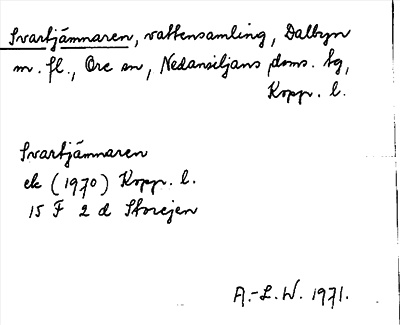 Svartjämnaren, vattensamling, Dalbyn
m. fl., Ore sn, Nedansiljans doms. tg,
Kopp. l.
Svartjämnaren
ek (1970) Kopp. l.
15 F 2 d Storejen
A.-L. W. 1971.